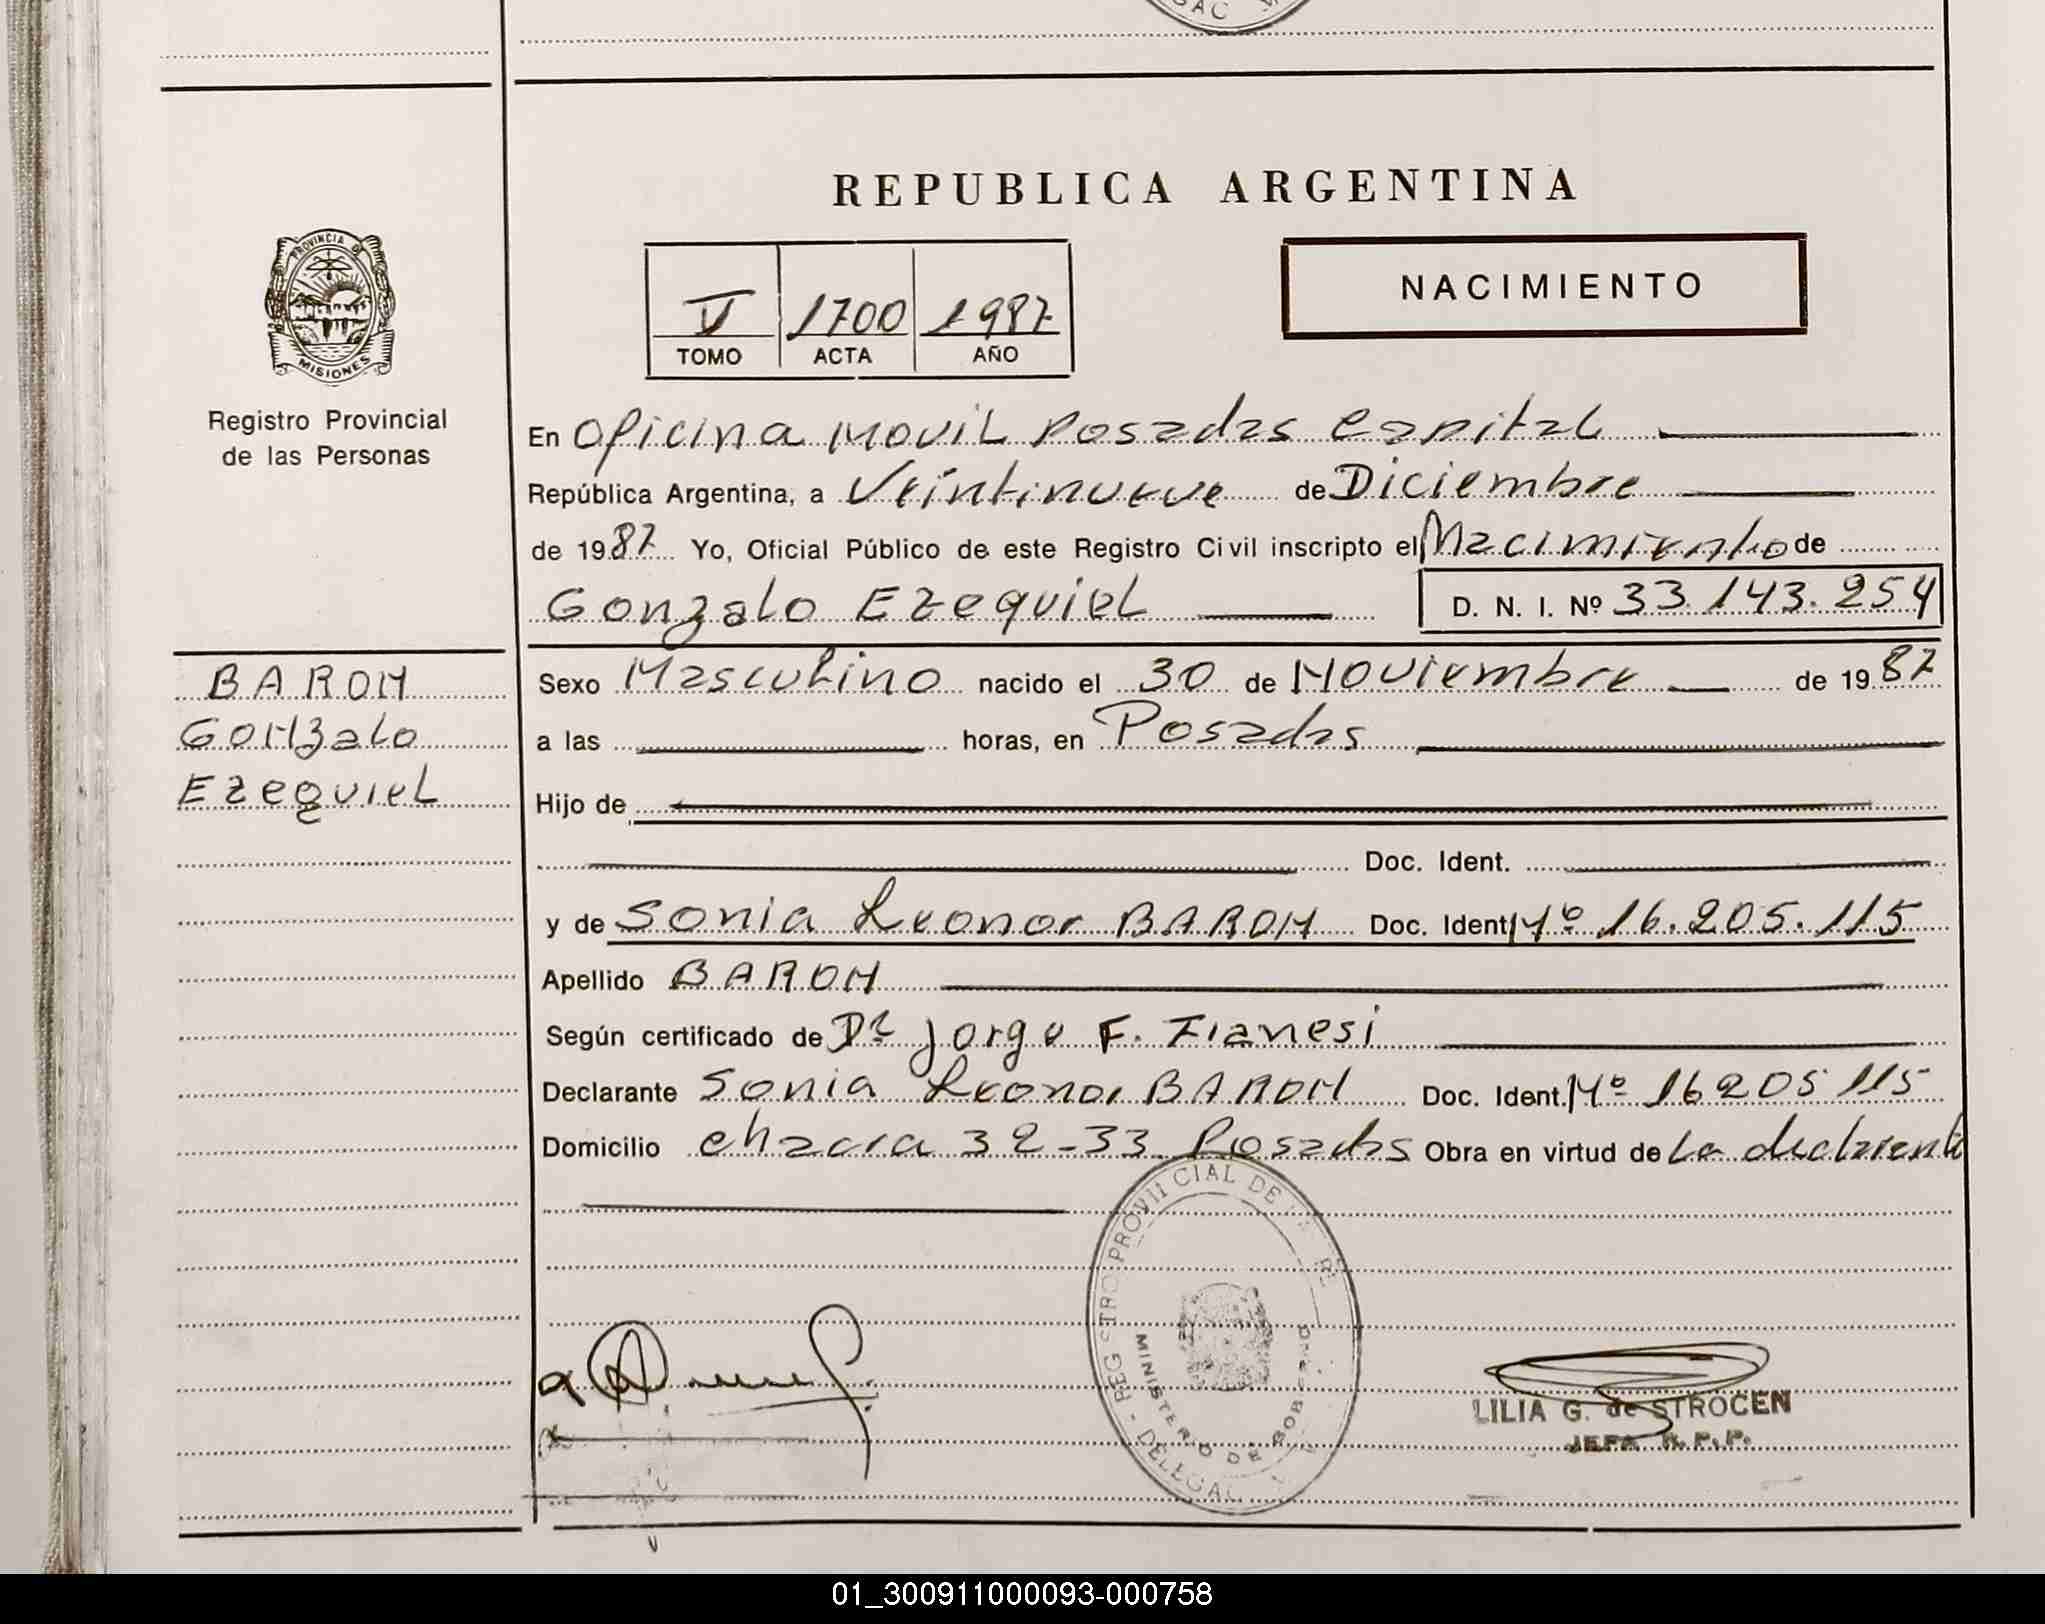 SAC
REPUBLICA ARGENTINA
PROVINCIA D
MISIONES
V 1700 1987
TOMO ACTA AÑO
NACIMIENTO
Registro Provincial
de las Personas
En Oficina Movil Posadas Capital
República Argentina, a Veintinueve de Diciembre
de 1987 Yo, Oficial Público de este Registro Civil inscripto el Nacimiento de
Gonzalo Ezequiel D. N. I. Nº 33.143.254
BARON
Gonzalo
Ezequiel
Sexo Masculino nacido el 30 de Noviembre de 1987
a las horas, en Posadas
Hijo de
Doc. Ident.
y de Sonia Leonor BARON Doc. Ident Nº 16.205.115
Apellido BARON
Según certificado de Dr Jorge F. Fianesi
Declarante Sonia Leonor BARON Doc. Ident. Nº 16205115
Domicilio Chacra 32-33 Posadas Obra en virtud de La declarante
REG STRO PROVINCIAL DE
MINISTERIO DE GOBIERNO
DELEGAC
LILIA G. de STROCEN
JEFA R.P.P.
01_300911000093-000758